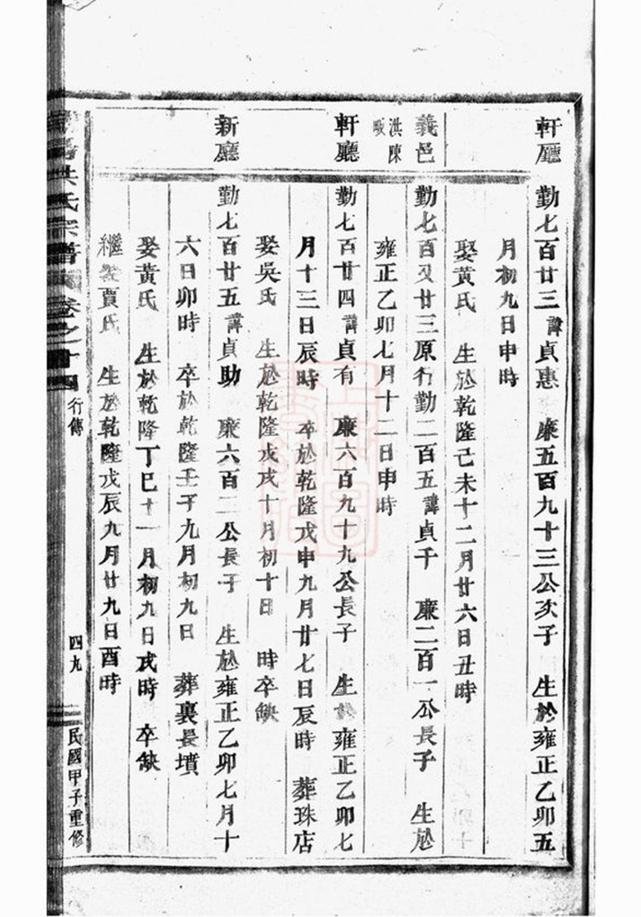 軒廳
勤七百廿三諱貞惠 廉五百九十三公次子 生於雍正乙卯五
月初九日申時
娶黃氏 生於乾隆己未十二月廿六日丑時
義邑
洪陳
勤七百又廿三原行勤二百五諱貞千 廉二百一公長子 生於
雍正乙卯七月十二日申時
軒廳
勤七百廿四諱貞有 廉六百九十九公長子 生於雍正乙卯七
月十三日辰時 卒於乾隆戊申九月廿七日辰時 葬珠店
娶吳氏 生於乾隆戊戌十月初十日 時卒缺
新廳
勤七百廿五諱貞助 廉六百二公長子 生於雍正乙卯七月十
六日卯時 卒於乾隆壬子九月初九日 葬裏長墳
娶黃氏 生於乾隆丁巳十一月初九日戌時 卒缺
繼娶賈氏 生於乾隆戊辰九月廿九日酉時
洪氏宗譜 卷之十四 行傳 四九 民國甲子重修